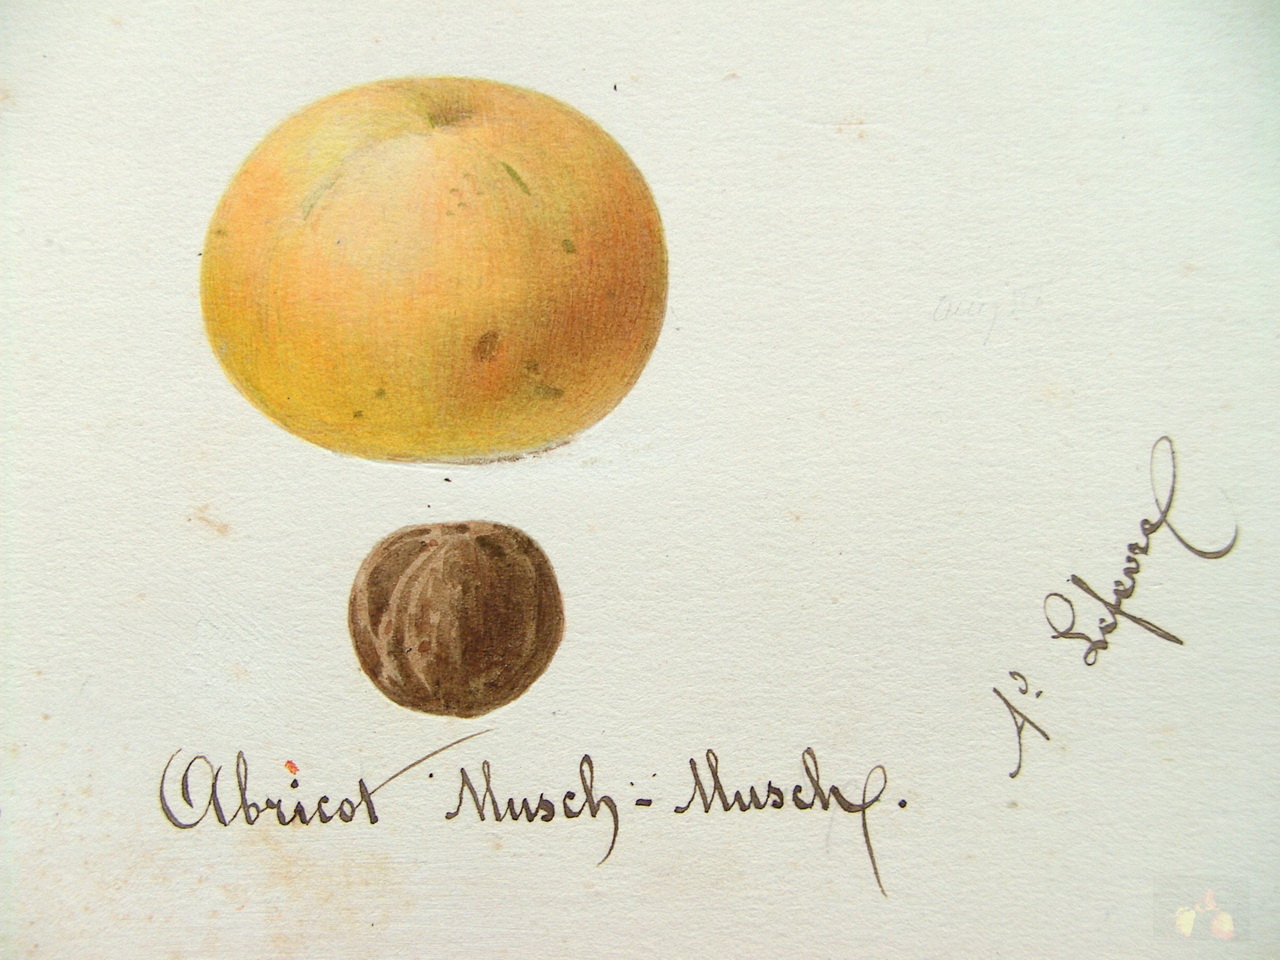 Abricot Musch-Musch.
A.s Lefevre